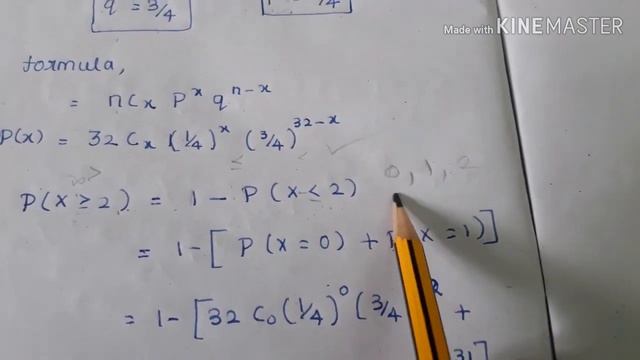 q = 3/4
Made with KINEMASTER
formula,
= nCx p^x q^n-x
P(x) = 32 Cx (1/4)^x (3/4)^32-x
P(x ≥ 2) = 1 - P(x < 2) 0, 1, 2
= 1 - [ P(x = 0) + P x = 1)]
= 1 - [32 C0 (1/4)^0 (3/4 +